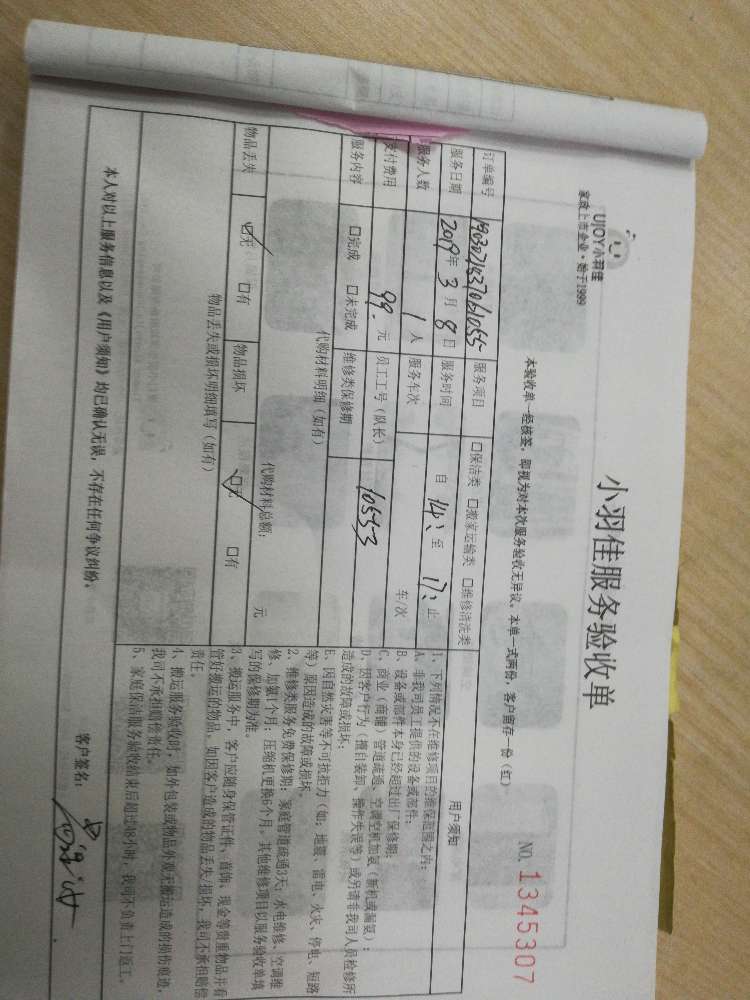 UJOY小羽佳
家政上市企业·始于1999
小羽佳服务验收单
NO. 1345307
本验收单一经核签，即视为对本次服务验收无异议。本单一式两份，客户留存一份（红）
订单编号 服务项目 □保洁类 □搬家运输类 □维修清洗类
服务日期 2019年 3月 8日 服务时间 自 14: 至 17: 止
服务人数 1 人 服务车次 车/次
支付费用 99. 元 员工工号（队长） 105553
服务内容 □完成 □未完成 维修类保修期
代购材料明细（如有）
代购材料总额： 元
物品丢失 ☑无 □有 物品损坏 ☑无 □有
物品丢失或损坏明细填写（如有）
用户须知
1、下列情况不在维修项目的维保范围之内：
A、非我司员工提供的设备或部件；
B、设备或部件本身已经超过出厂保修期；
C、商业（商铺）管道疏通、空调空机加氨（新机或漏氨）；
D、因客户行为（擅自装卸、操作失误等）或另请非我司人员检修所
造成的故障或损坏；
E、因自然灾害等不可抗拒力（如：地震、雷电、火灾、停电、短路
等）原因造成的故障或损坏。
2、维修类服务免费保修期：家庭管道疏通3天；水电维修、空调维
修、加氨1个月；压缩机更换6个月。其他维修项目以服务验收单填
写的保修期为准。
3、搬运服务中，客户应随身保管证件、首饰、现金等贵重物品并看
管好搬运的物品，如因客户造成的物品丢失/损坏，我司不承担赔偿
责任。
4、搬运服务验收时，如外包装或物品外观无搬运造成的损伤痕迹，
我司不承担赔偿责任。
5、家庭保洁服务验收结束后超过48小时，我司不负责上门返工。
本人对以上服务信息以及《用户须知》均已确认无误，不存在任何争议纠纷。
客户签名：